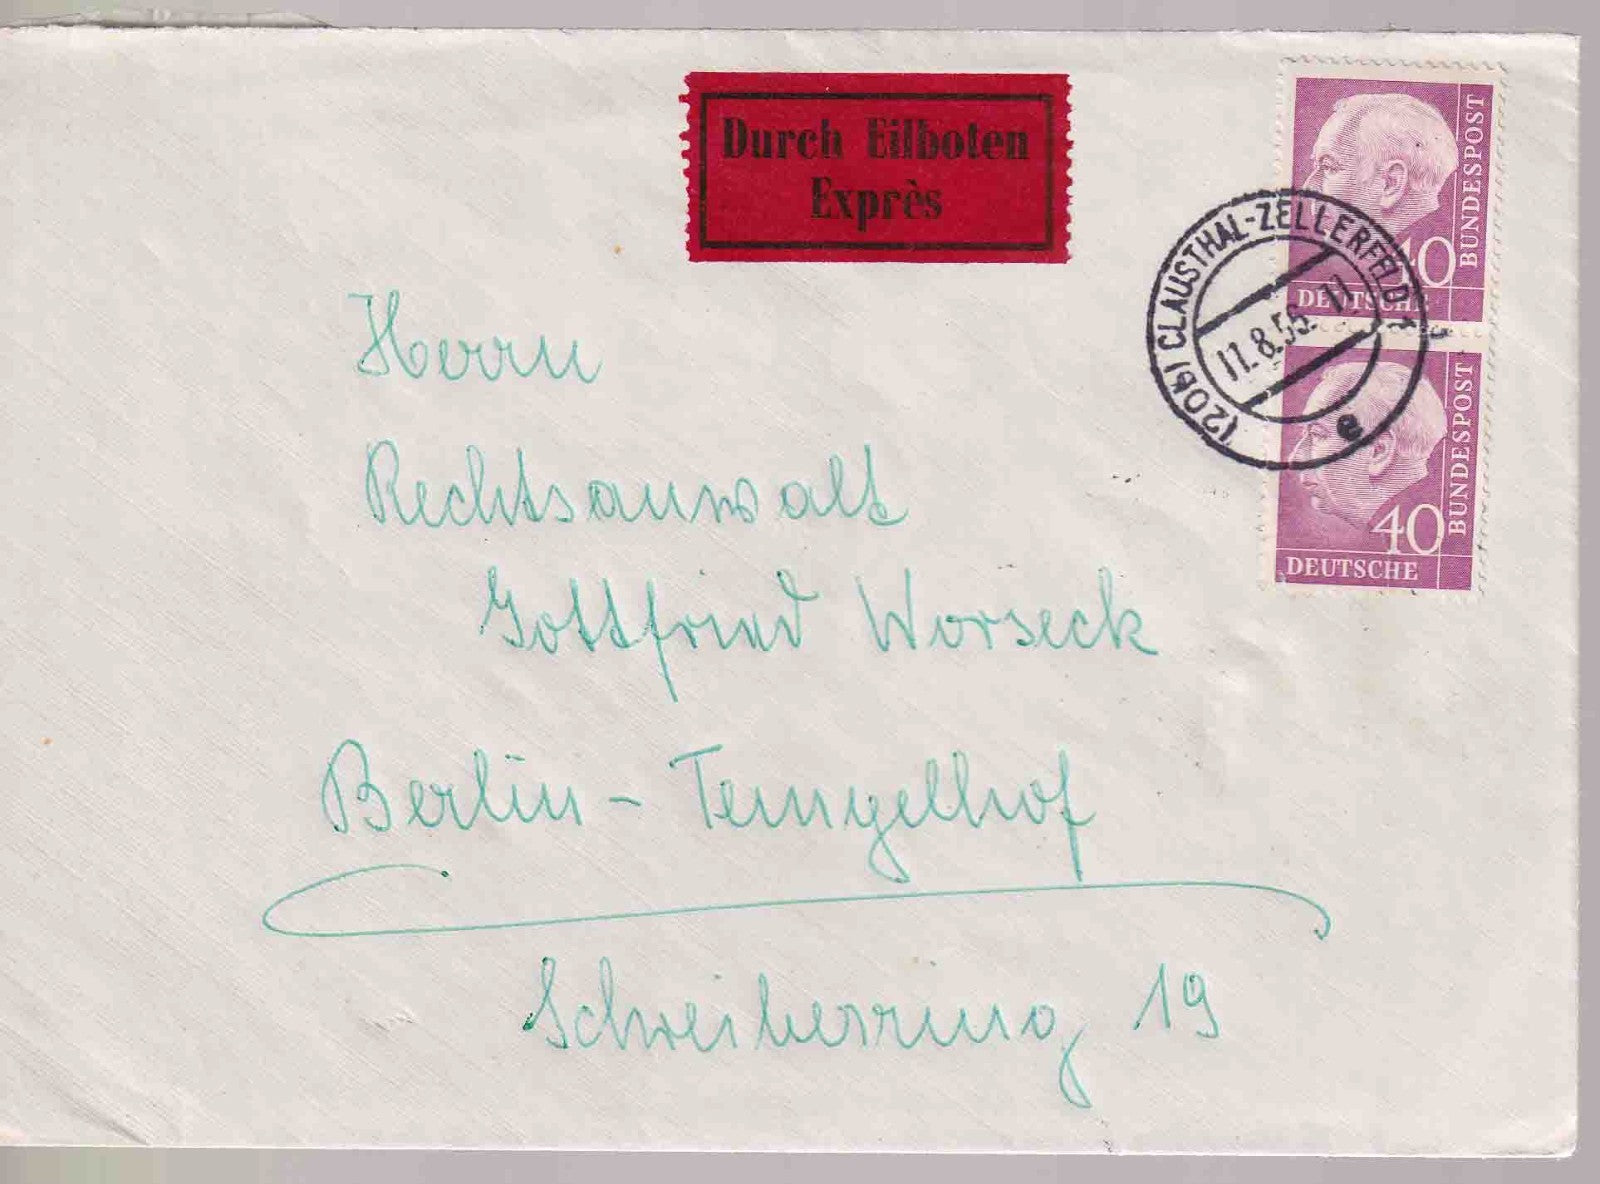 Durch Eilboten
Exprès
40
DEUTSCHE
BUNDESPOST
(20b) CLAUSTHAL-ZELLERFELD 1
11.8.56. 17
e
40
DEUTSCHE
BUNDESPOST
Herrn
Rechtsanwalt
Gottfried Worseck
Berlin - Tempelhof
Schreiberring 19